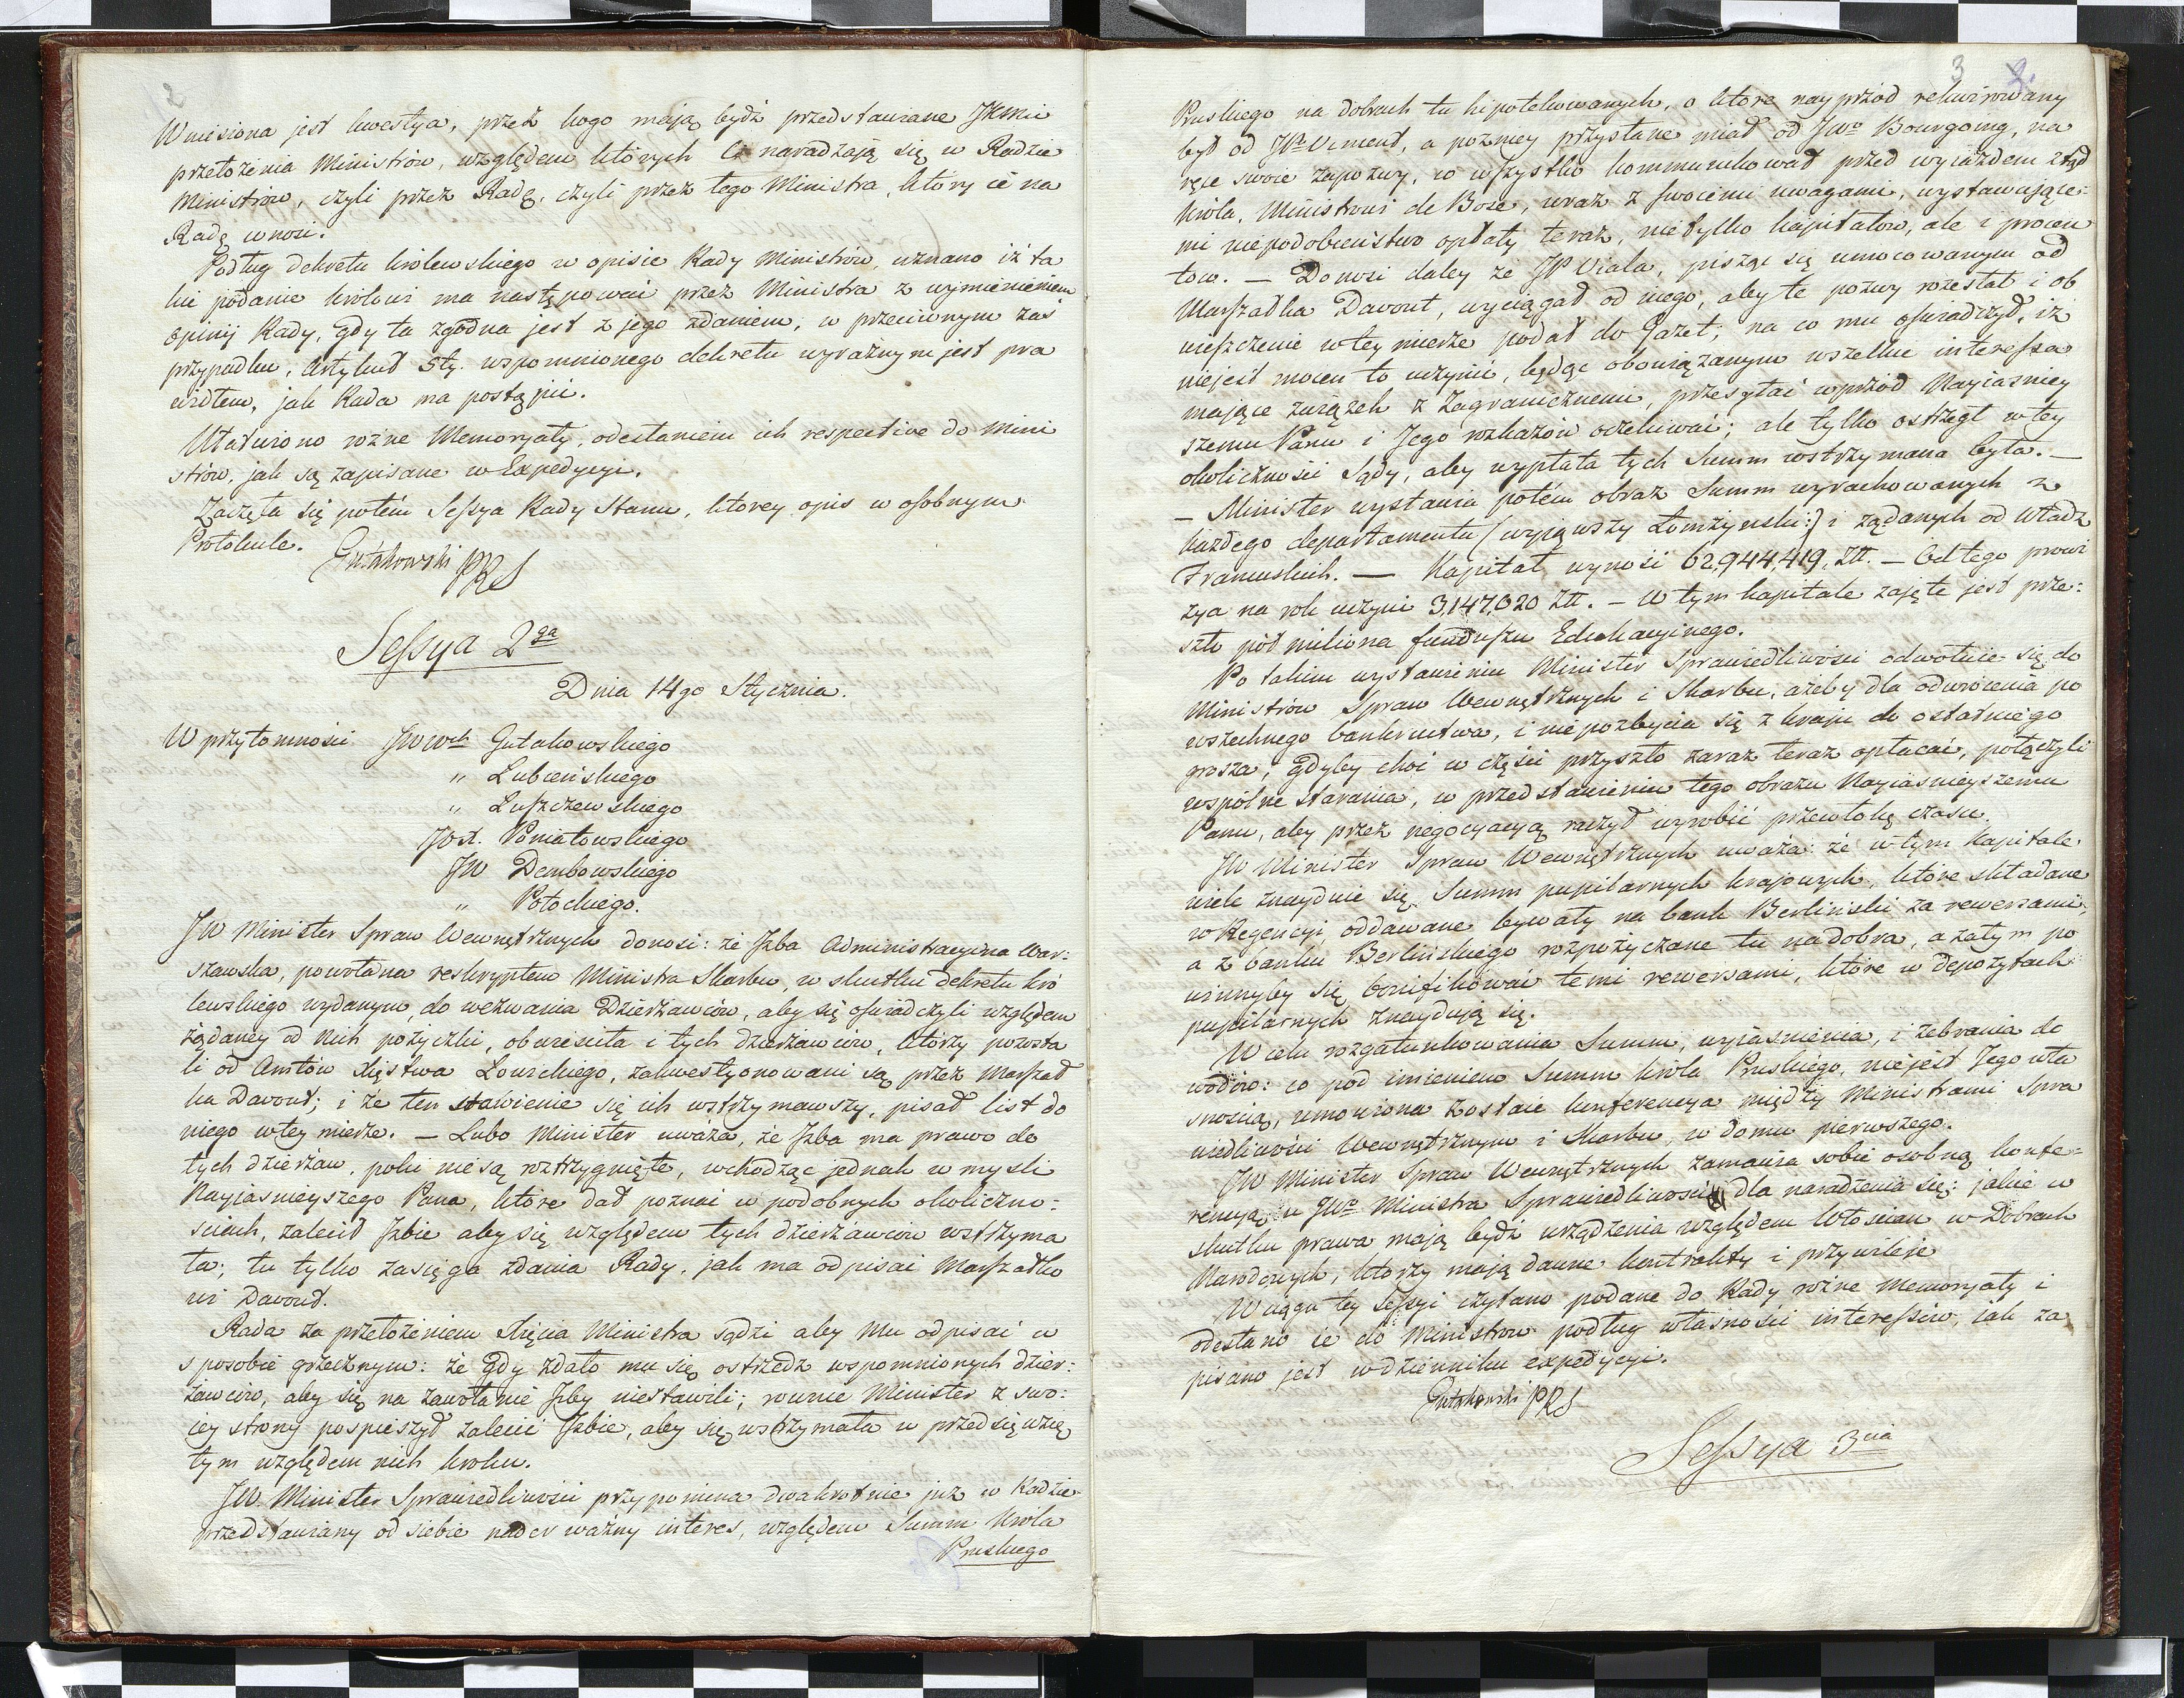 2
Wniesiona jest kwestya, przez kogo mają bydź przedstawiane JKMci
przełożenia Ministrów, względem których Ci naradzają się w Radzie
Ministrów, czyli przez Radę, czyli przez tego Ministra, który ie na
Radę wnosi.
Podług dekretu królewskiego w opisie Rady Ministrów, uznano iż ta
kie podanie królowi ma następować przez Ministra z wymienieniem
opinij Rady, gdy ta zgodna jest z jego zdaniem; w przeciwnym zaś
przypadku, Artykuł 5ty. wspomnionego dekretu wyraźnym jest pra
widłem, jak Rada ma postąpić.
Ułatwiono rożne Memoryały, odesłaniem ich respective do Mini
strów, jak są zapisane w Expedycyi.
Zaczęła się potém Sessya Rady Stanu, ktorey opis w osobnym
Protokule.
Gutakowski PRS
Sessya 2ga
Dnia 14go Stycznia.
W przytomności JWWch Gutakowskiego
" Lubieńskiego
" Łuszczewskiego
JOX. Poniatowskiego
JW Dembowskiego
" Potockiego.
JW Minister Spraw Wewnętrznych donosi: że Izba Administracyina War:
szawska, powołana reskryptem Ministra Skarbu, w skutku dekretu kró
lewskiego wydanym, do wezwania Dzierżawców, aby się oświadczyli względem
żądaney od nich pożyczki, obwieściła i tych dzierżawców, którzy pozosta
li od Amtów Xięstwa Łowickiego, zakwestyonowani są przez Marszał
ka Davout; i że ten stawienie się ich wstrzymawszy, pisał list do
niego w tey mierze. — Lubo Minister uważa, że Izba ma prawo do
tych dzierżaw, poki nie są roztrzygnięte, wchodząc jednak w myśli
Nayiaśnieyszego Pana, które dał poznać w podobnych okoliczno:
ściach, zalecił Izbie aby się względem tych dzierżawców wstrzyma
ła; tu tylko zasięga zdania Rady, jak ma odpisać Marszałko
wi Davout.
Rada za przełożeniem Xięcia Ministra sądzi aby Mu odpisać w
sposobie grzecznym: że gdy zdało mu się ostrzedz wspomnionych dzier:
żawców, aby się na zawołanie Izby niestawili; rownie Minister z swo:
iey strony pospieszył zalecić Izbie, aby się wstrzymała w przedsięwzię
tym względem nich kroku.
JW. Minister Sprawiedliwości przypomina dwakrotnie już w Radzie
przedstawiany od siebie nader ważny interes, względem Summ Króla
Pruskiego
3
Pruskiego na dobrach tu hipotekowanych, o które nayprzód rekwirowany
był od JP. Viment, a pozniey przysłane miał od JWo Bourgoing, na
ręce swoie zapozwy, co wszystko kommunikował przed wyiazdem ztąd
Króla, Ministrowi de Bose, wraz z swoiemi uwagami, wystawujące:
mi niepodobieństwo opłaty teraz, nietylko kapitałow, ale i procen
tow. — Donosi daley że JP Viala, pisząc się umocowanym od
Marszałka Davout, wyciągał od niego, aby te pozwy rozesłał i ob
wieszczenie w tey mierze podał do Gazet; na co mu oświadczył, iż
niejest mocen to uczynić, będąc obowiązanym wszelkie interessa
mające związek z Zagranicznemi, przesyłać wprzód Nayiaśniey
szemu Panu i Jego rozkazow oczekiwać; ale tylko ostrzegł w tey
okoliczności Sądy, aby wypłata tych Summ wstrzymana była. —
— Minister wystawia potém obraz Summ wyrachowanych z
każdego departamentu (wyiąwszy Łomżyński:) i żądanych od Władz
Francuskich. — Kapitał wynosi 62,944,419, Złł. — Od tego prowi
zya na rok uczyni 3,147,020 Złł. — W tym kapitale zajęte jest prze:
szło pół miliona funduszu Edukacyinego.
Po takim wystawieniu Minister Sprawiedliwości odwołuie się do
Ministrów Spraw Wewnętrznych i Skarbu, ażeby dla odwrócenia po
wszechnego bankructwa, i niepozbycia się z kraju do ostatniego
grosza, gdyby choć w części przyszło zaraz teraz opłacać, połączyli
wspólne starania, w przedstawieniu tego obrazu Nayiaśnieyszemu
Panu, aby przez negocyacyą raczył wyrobić przewłokę czasu.
JW Minister Spraw Wewnętrznych uważa: że w tym kapitale
wiele znayduie się Summ pupilarnych krajowych, które składane
w Regencyi, oddawane bywały na bank Berliński za rewersami,
a z banku Berlińskiego rozpożyczane tu na dobra, a zatym po
winnyby się bonifikować temi rewersami, które w depozytach
pupilarnych znaydują się.
W celu rozgatunkowania Summ, wyiaśnienia, i zebrania do
wodów: co pod imieniem Summ króla Pruskiego, niejest Jego wła
snością, umowiona zostaie konferencya między Ministrami Spra
wiedliwości Wewnętrznym i Skarbu, w domu pierwszego.
JW Minister Spraw Wewnętrznych zamawia sobie osobną konfe=
rencyą u JWo Ministra Sprawiedliwości dla naradzenia się: jakie w
skutku prawa mają bydź urządzenia względem Włościan w Dobrach
Narodowych, ktorzy mają dawne kontrakty i przywileje
W ciągu tey Sessyi czytano podane do Rady rożne Memoryały i
odesłano ie do Ministrow podług własności interessów, jak za
pisano jest w dzienniku expedycyi.
Gutakowski PRS
Sessya 3cia